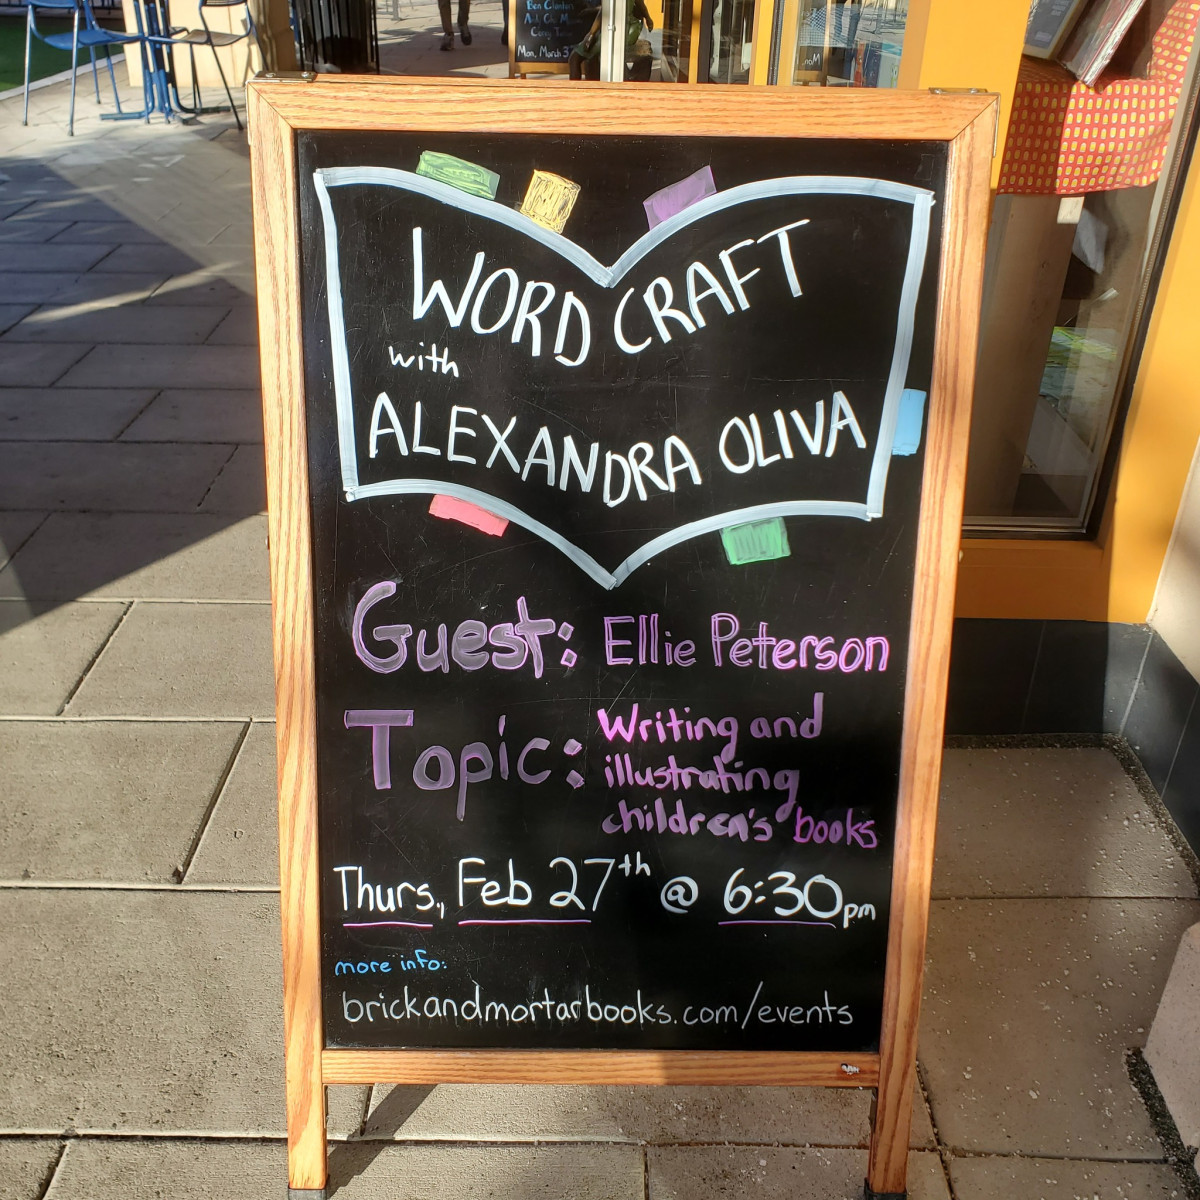 Ben Clanton
Mon, March 3
WORD CRAFT
with
ALEXANDRA OLIVA
Guest: Ellie Peterson
Topic: Writing and
illustrating
children's books
Thurs., Feb 27th @ 6:30pm
more info:
brickandmortarbooks.com/events